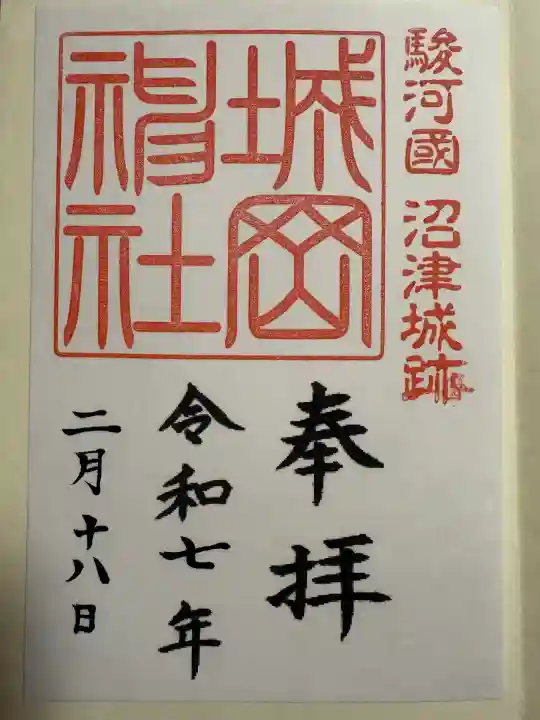 駿河國 沼津城跡
城岡
神社
奉拝
令和七年
二月十八日